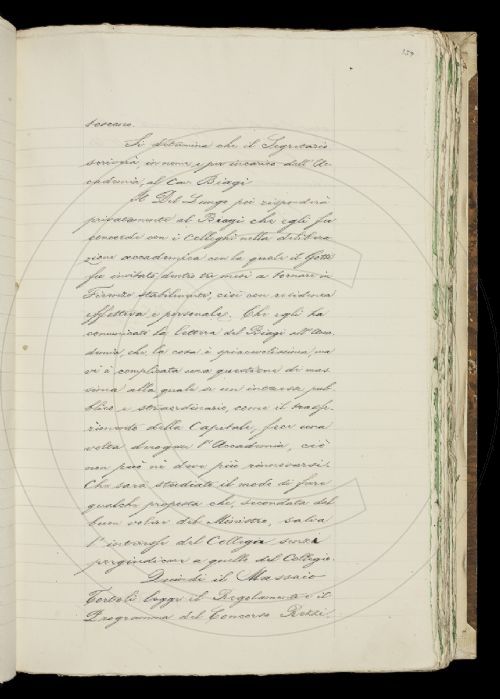 159
toscano.
Si determina che il Segretario
scriverà, in nome e per incarico dell'Ac-
cademia, al Cav. Biagi
Il Del Lungo poi risponderà
privatamente al Biagi che egli fu
concorde con i Colleghi nella delibera
zione accademica con la quale il Gotti
fu invitato dentro tre mesi a tornare in
Firenze stabilmente, cioè con residenza
effettiva e personale. Che egli ha
comunicato la lettera del Biagi all'Acca-
demia, che la cosa è spiacentissima, ma
vi è complicata una questione di mas
sima alla quale se un interesse pub
blico e straordinario, come il trasfe
rimento della Capitale, fece una
volta derogare l'Accademia, ciò
non può nè deve più rinnovarsi.
Che sarà studiato il modo di fare
qualche proposta che, secondata dal
buon volere del Ministro, salvi
l'interesse del Collegio senza
pregiudicare a quello del Collegio.
Quindi il Massaio
Tortoli legge il Regolamento e il
Programma del Concorso Rezzi.